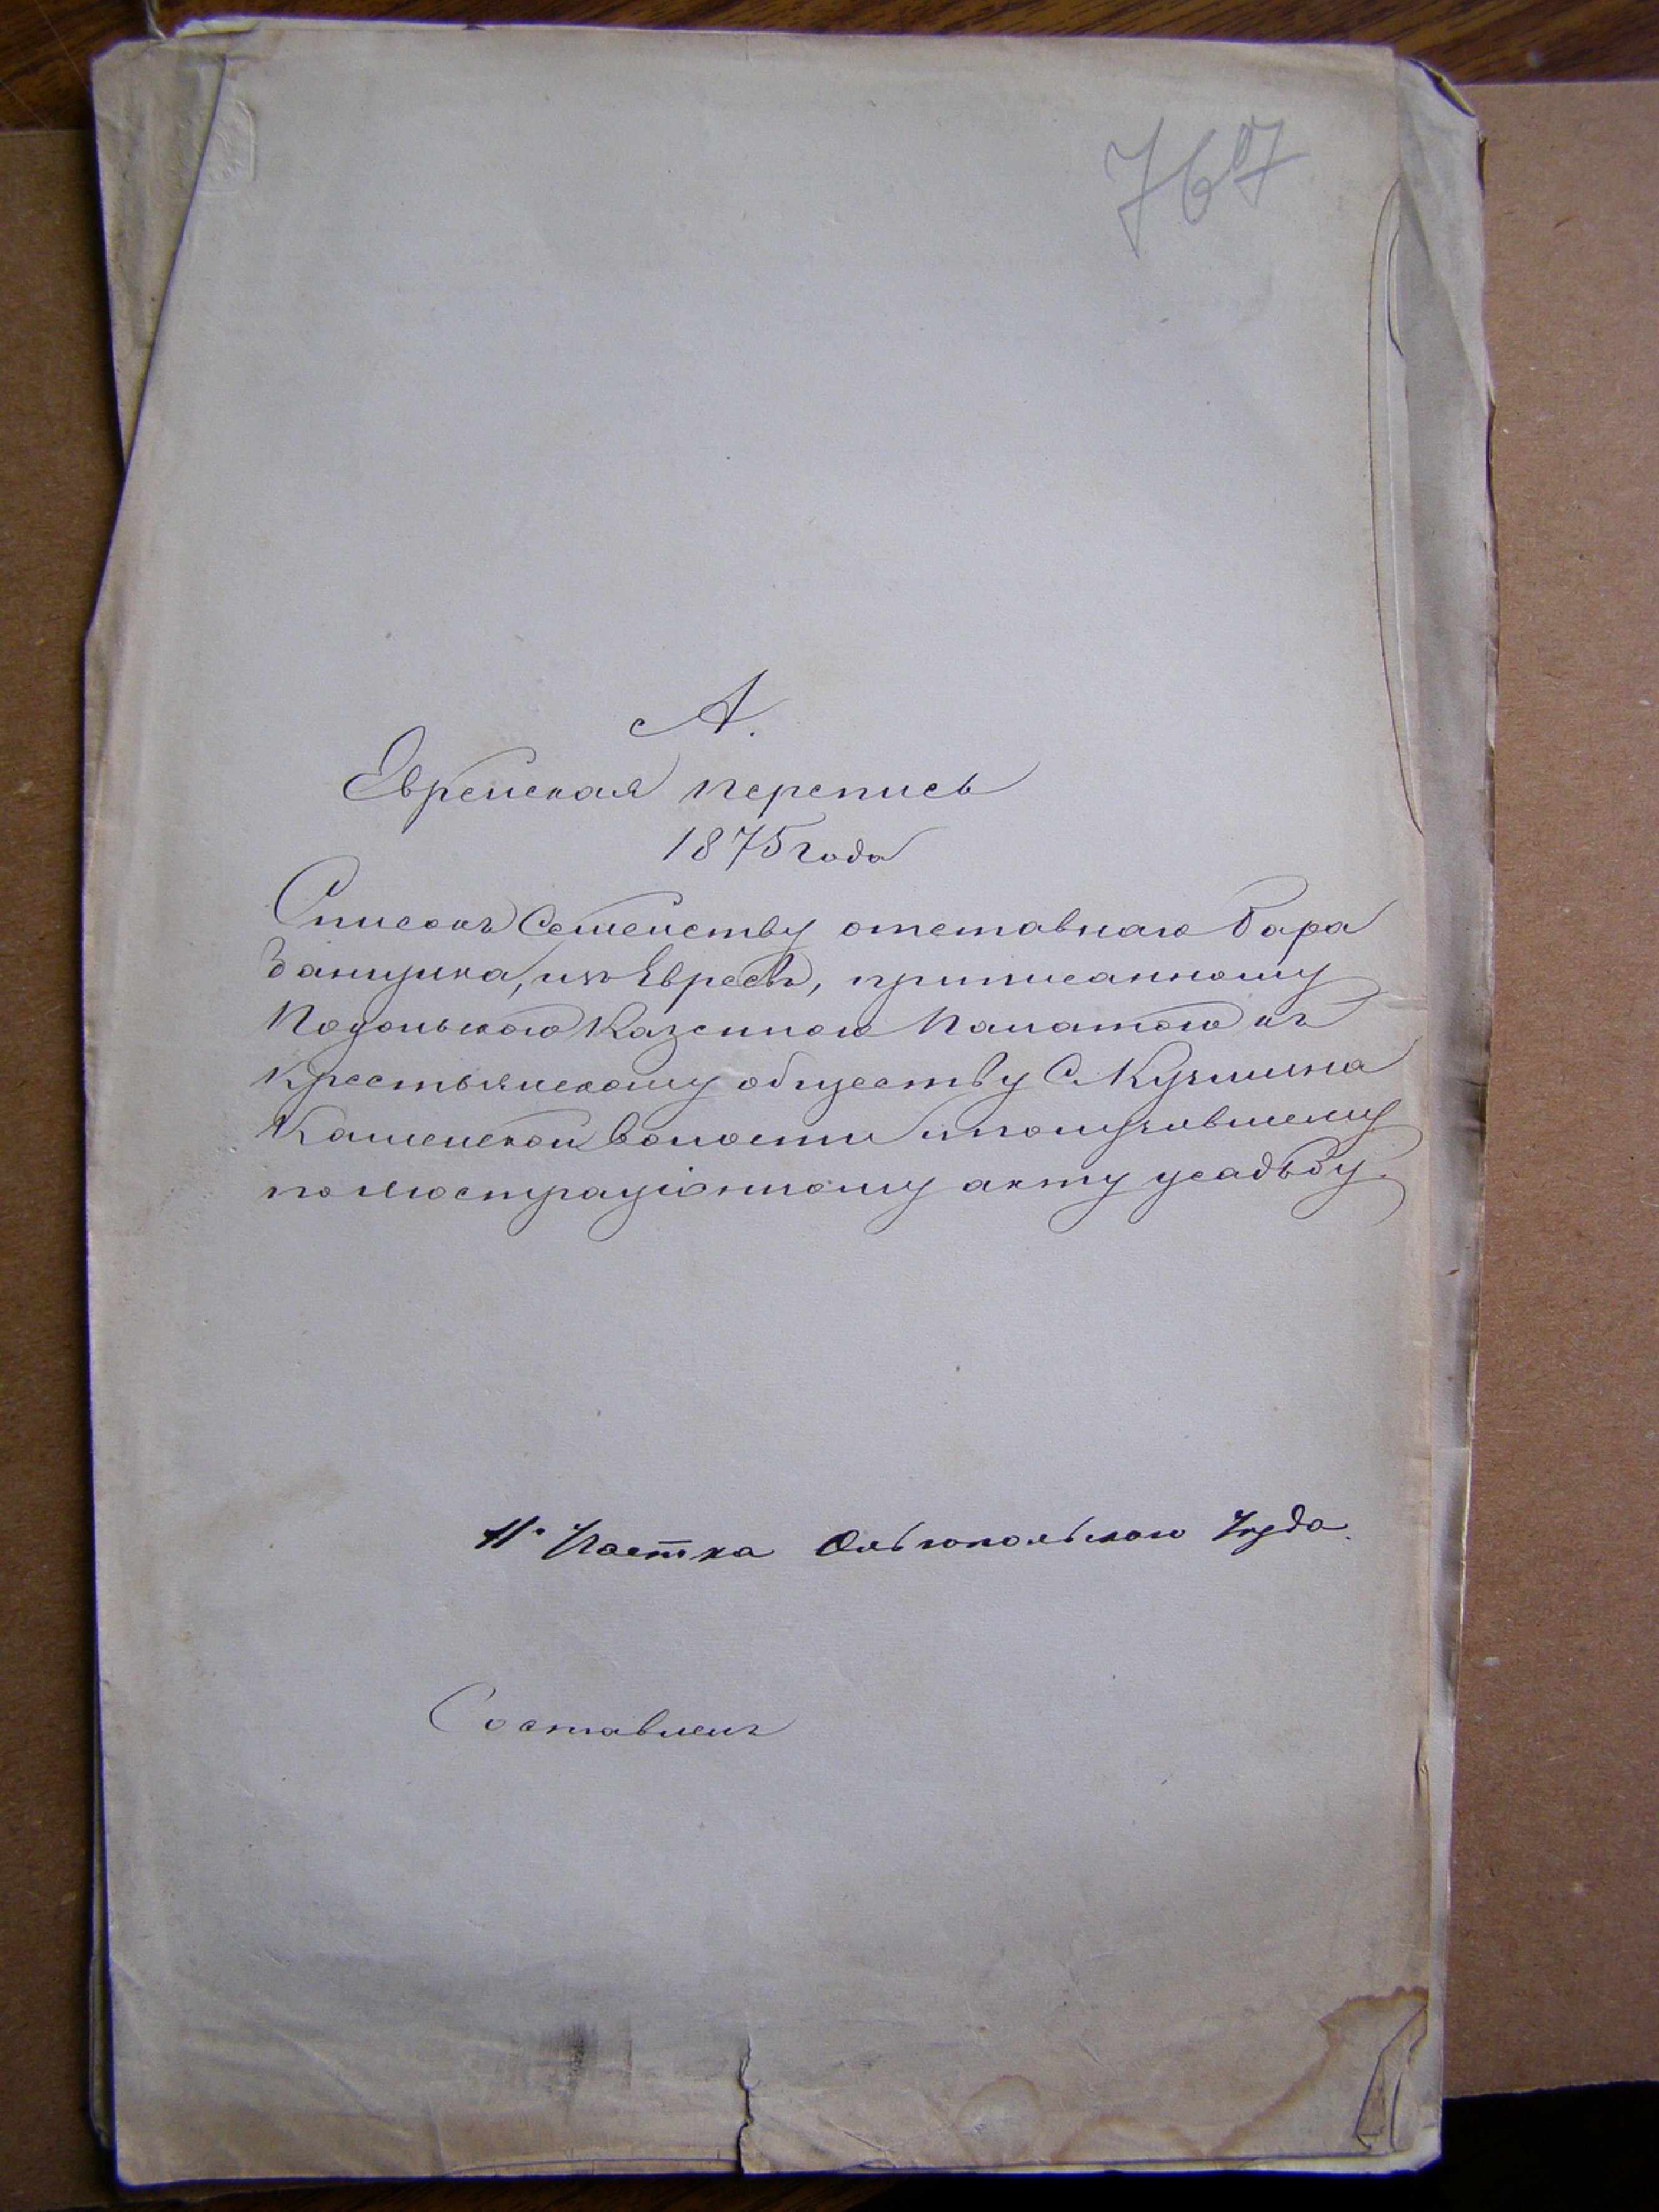 767
А.
Еврейская перепись
1875 года
Списокъ Семейству отставнаго бара
банщика, изъ Евреевъ, приписанному
Подольскою Казенною Палатою къ
крестьянскому обществу С. Кузмина
Каменской волости и получившему
по люстраціонному акту усадьбу.
Участка Ольгопольского Уезда.
Составленъ